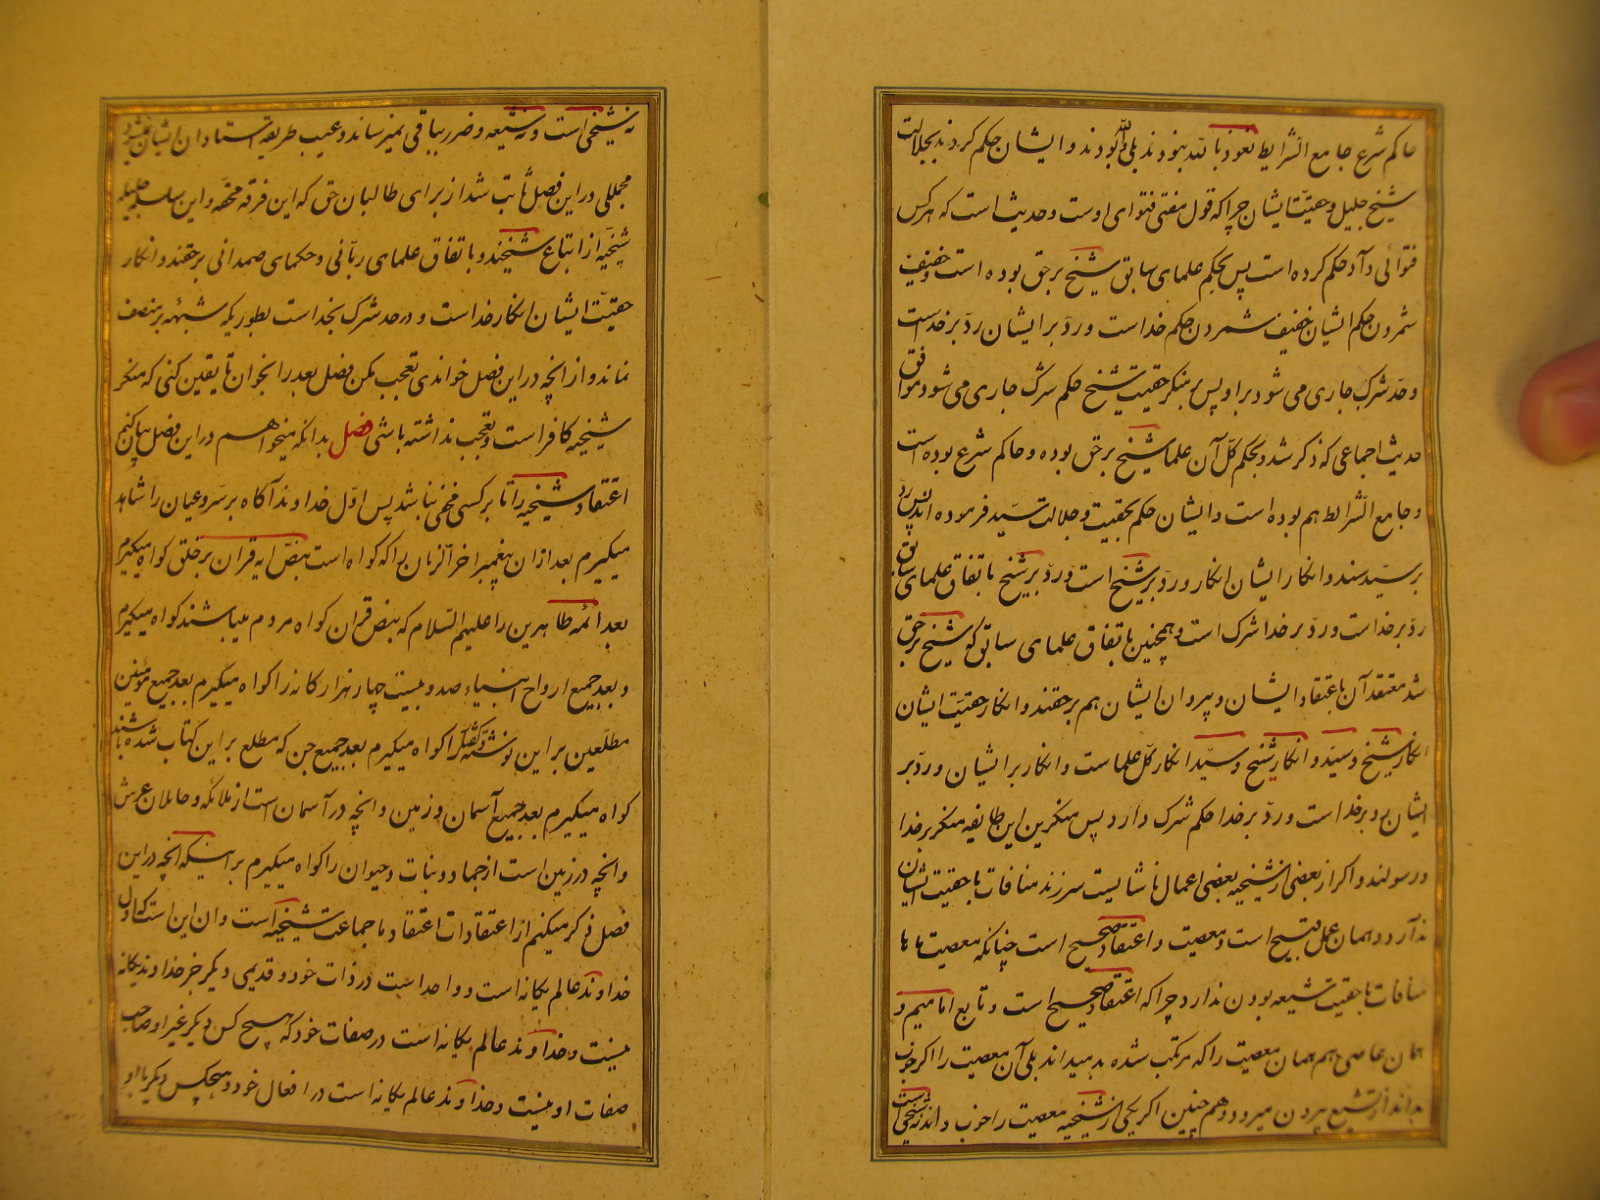 حاکم شرع جامع الشرایط نعوذ بالله نبودند بلی والله بودند و ایشان حکم کردند بجلالت
شیخ جلیل و حقیّت ایشان چرا که قول مفتی فتوای اوست و حدیث است که هر کس
فتوائی داد حکم کرده است پس بحکم علمای سابق شیخ بر حق بوده است و خفیف
شمردن حکم ایشان خفیف شمردن حکم خداست و ردّ بر ایشان ردّ بر خداست
و حد شرک جاری می شود بر او پس بر منکر حقیت شیخ حکم شرک جاری می شود موافق
حدیث اجماعی که ذکر شد و بحکم کلّ آن علما شیخ بر حق بوده و حاکم شرع بوده است
و جامع الشرایط هم بوده است و ایشان حکم بحقیت و جلالت سیّد فرموده اند پس ردّ
بر سیّد سند و انکار ایشان انکار و ردّ بر شیخ است و ردّ بر شیخ باتفاق علمای سابق
ردّ بر خداست و ردّ بر خدا شرک است و همچنین باتفاق علمای سابق که شیخ بر حق
شد معتقد آن باعتقاد ایشان و پیروان ایشان هم بر حقند و انکار حقیّت ایشان
انکار شیخ و سیّد و انکار شیخ و سیّد انکار کلّ علماست و انکار بر ایشان و ردّ بر
ایشان ردّ بر خداست و ردّ بر خدا حکم شرک دارد پس منکرین این طایفه منکر بر خدا
و رسولند و اکر از بعضی از شیخیه بعضی اعمال ناشایست سر زند منافات با حقیت ایشان
ندارد و همان عمل قبیح است و معصیت و اعتقاد صحیح است چنانکه معصیت ما ها
منافات با حقیت شیعه بودن ندارد چرا که اعتقاد صحیح است و تابع امامیم و
همان عاصی هم همان معصیت را که مرتکب شده بد میداند بلی آن معصیت را اکر خوب
بداند از تشیع بیرون میرود و هم چنین اکر یکی از شیخیه معصیت را خوب داند نه شیخی است
نه شیخی است و نه شیعه و ضرر بباقی نمیرساند و عیب طریقه استادان ایشان نمیشود
مجملی در این فصل ثابت شد از برای طالبان حق که این فرقه محقه و این سلسله جلیله
شیخیّه از اتباع شیخند و باتفاق علمای ربّانی و حکمای صمدانی بر حقند و انکار
حقیّت ایشان انکار خداست و در حد شرک بخداست بطوریکه شبهه بر منصف
نماند و از انچه در این فصل خواندی تعجب مکن فصل بعد را بخوان تا یقین کنی که منکر
شیخیه کافر است و تعجب نداشته باشی فصل بدانکه میخواهم در این فصل بیان کنم
اعتقاد شیخیه را تا بر کسی مخفی نباشد پس اوّل خداوند آکاه بر سر و عیان را شاهد
میکیرم بعد از ان پیغمبر اخر الزمان را که کواه است بنصّ ایه قران بر خلق کواه میکیرم
بعد ائمه طاهرین را علیهم السّلام که بنص قران کواه مردم میباشند کواه میکیرم
و بعد جمیع ارواح انبیاء صد و بیست چهار هزار کانه را کواه میکیرم بعد جمیع مؤمنین
مطلّعین بر این نوشته و را کواه میکیرم بعد جمیع جن که مطلع بر این کتاب شده باشند
کواه میکیرم بعد جمیع آسمان و زمین و انچه در آسمان است از ملائکه و حاملان عرش
و انچه در زمین است از جماد و نبات و حیوان را کواه میکیرم بر اینکه انچه در این
فصل ذکر میکنم از اعتقادات اعتقاد ما جماعت شیخیه است و ان این است که اول
خداوند عالم یکانه است و واحد است در ذات خود و قدیمی دیکر جز خداوند یکانه
نیست و خداوند عالم یکانه است در صفات خود که هیچ کس دیکر غیر او صاحب
صفات او نیست و خداوند عالم یکانه است در افعال خود و هیچکس دیکر با او